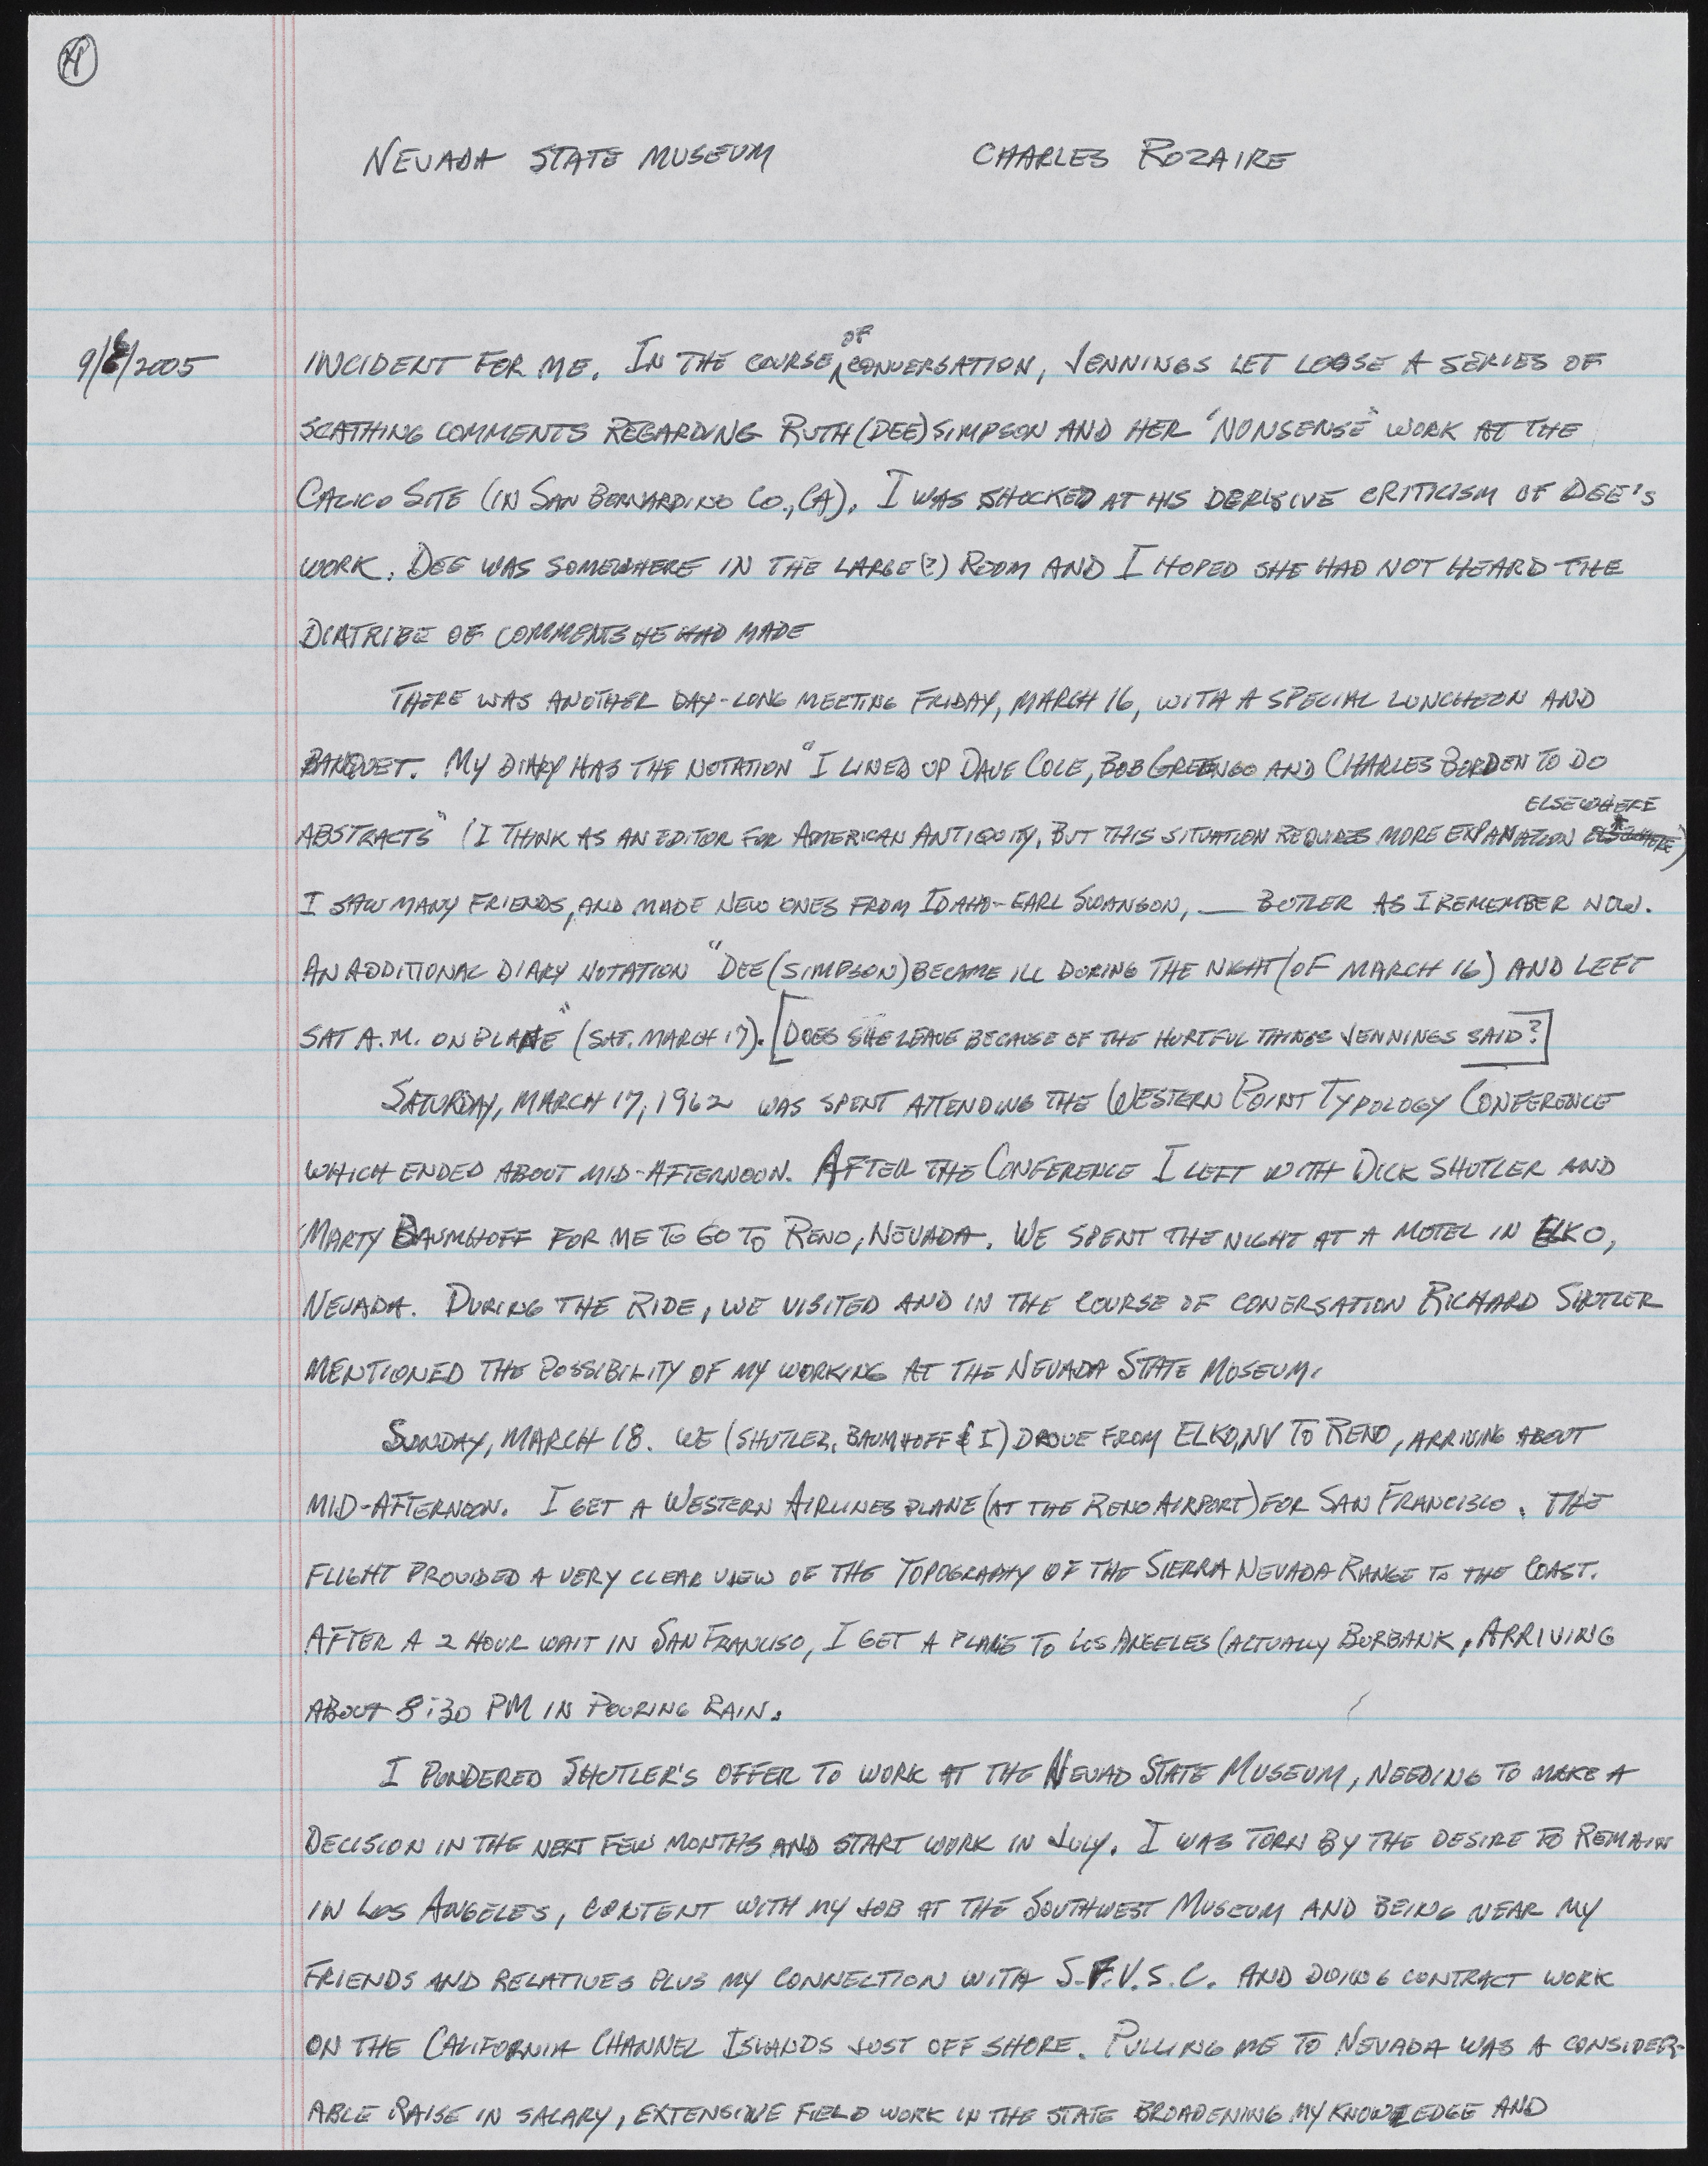 4
NEVADA STATE MUSEUM CHARLES ROZAIRE
9/6/2005
INCIDENT FOR ME. IN THE COURSE OF CONVERSATION, JENNINGS LET LOOSE A SERIES OF
SCATHING COMMENTS REGARDING RUTH (DEE) SIMPSON AND HER "NONSENSE" WORK AT THE
CALICO SITE (IN SAN BERNARDINO CO., CA). I WAS SHOCKED AT HIS DERISIVE CRITICISM OF DEE'S
WORK. DEE WAS SOMEWHERE IN THE LARGE(?) ROOM AND I HOPED SHE HAD NOT HEARD THE
DIATRIBE OF COMMENTS HE HAD MADE
THERE WAS ANOTHER DAY-LONG MEETING FRIDAY, MARCH 16, WITH A SPECIAL LUNCHEON AND
BANQUET. MY DIARY HAS THE NOTATION "I LINED UP DAVE COLE, BOB GREENGO AND CHARLES BORDEN TO DO
ABSTRACTS" (I THINK AS AN EDITOR FOR AMERICAN ANTIQUITY, BUT THIS SITUATION REQUIRES MORE EXPANATION ELSEWHERE)
I SAW MANY FRIENDS, AND MADE NEW ONES FROM IDAHO - EARL SWANSON, __ BUTLER AS I REMEMBER NOW.
AN ADDITIONAL DIARY NOTATION "DEE (SIMPSON) BECAME ILL DURING THE NIGHT (OF MARCH 16) AND LEFT
SAT A.M. ON PLANE" (SAT. MARCH 17). [DOES SHE LEAVE BECAUSE OF THE HURTFUL THINGS JENNINGS SAID?]
SATURDAY, MARCH 17, 1962 WAS SPENT ATTENDING THE WESTERN POINT TYPOLOGY CONFERENCE
WHICH ENDED ABOUT MID-AFTERNOON. AFTER THE CONFERENCE I LEFT WITH DICK SHUTLER AND
MARTY BAUMHOFF FOR ME TO GO TO RENO, NEVADA. WE SPENT THE NIGHT AT A MOTEL IN ELKO,
NEVADA. DURING THE RIDE, WE VISITED AND IN THE COURSE OF CONERSATION RICHARD SHUTLER
MENTIONED THE POSSIBILITY OF MY WORKING AT THE NEVADA STATE MUSEUM.
SUNDAY, MARCH 18. WE (SHUTLER, BAUMHOFF & I) DROVE FROM ELKO, NV TO RENO, ARRIVING ABOUT
MID-AFTERNOON. I GET A WESTERN AIRLINES PLANE (AT THE RENO AIRPORT) FOR SAN FRANCISCO. THE
FLIGHT PROVIDED A VERY CLEAR VIEW OF THE TOPOGRAPHY OF THE SIERRA NEVADA RANGE TO THE COAST.
AFTER A 2 HOUR WAIT IN SAN FRANCISO, I GET A PLANE TO LOS ANGELES (ACTUALLY BURBANK, ARRIVING
ABOUT 8:30 PM IN POURING RAIN.
I PONDERED SHUTLER'S OFFER TO WORK AT THE NEVAD STATE MUSEUM, NEEDING TO MAKE A
DECISION IN THE NEXT FEW MONTHS AND START WORK IN JULY. I WAS TORN BY THE DESIRE TO REMAIN
IN LOS ANGELES, CONTENT WITH MY JOB AT THE SOUTHWEST MUSEUM AND BEING NEAR MY
FRIENDS AND RELATIVES PLUS MY CONNECTION WITH S.F.V.S.C. AND DOING CONTRACT WORK
ON THE CALIFORNIA CHANNEL ISLANDS JUST OFF SHORE. PULLING ME TO NEVADA WAS A CONSIDER-
ABLE RAISE IN SALARY, EXTENSIVE FIELD WORK IN THE STATE BROADENING MY KNOWLEDGE AND